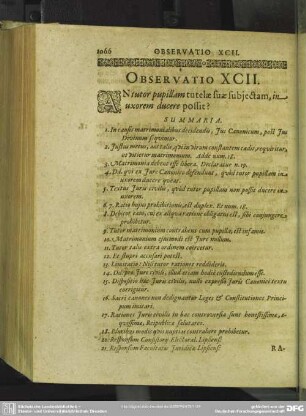 1066 OBSERVATIO XCII.
OBSERVATIO XCII.
AN tutor pupillam tutelæ suæ subjectam, in
uxorem ducere possit?
SUMMARIA.
1. In causis matrimonialibus decidendis, Jus Canonicum, post Jus
Divinum sequimur.
2. Justus metus, aut talis, qui in virum constantem cadit, requiritur,
ut vitietur matrimonium. Adde num. 18.
3. Matrimonia debent esse libera. Declaratur n. 19.
4. Dd. qui ex Jure Canonico defendunt, quod tutor pupillam in
uxorem ducere queat.
5. Textus Juris civilis, quod tutor pupillam non possit ducere in
uxorem.
6. 7. Ratio hujus prohibitionis, est duplex. Et num. 18.
8. Debitor cum, cui ex aliqua ratione obligatus est, sibi conjungere
prohibetur.
9. Tutor matrimonium contrahens cum pupilla, est infamis.
10. Matrimonium ejusmodi est Jure nullum.
11. Tutor talis extra ordinem coërcetur.
12. Et stupri accusari potest.
13. Limitatio: Nisi tutor rationes reddiderit.
14. Dd. pro Jure civili, illud etiam hodie custodiendum esse.
15. Dispositio hæc Juris civilis, nullo expresso Juris Canonici textu
corrigitur.
16. Sacri canones non dedignantur Leges & Constitutiones Principum
imitari.
17. Rationes Juris civilis in hac controversia sunt honestissimæ,
æquissimæ, Reipublicæ salutares.
18. Pluribus modis quis nuptias contrahere prohibetur.
20. Responsum Consistorij Electoral. Lipsiens.
21. Responsum Facultatis Juridicæ Lipsiens.
RA-